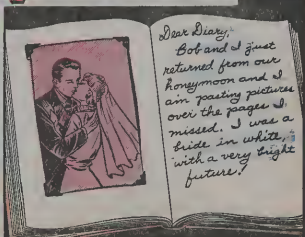 Dear Diary,
Bob and I just
returned from our
honeymoon and I
am pasting pictures
over the pages I
missed. I was a
bride in white,
with a very bright
future!